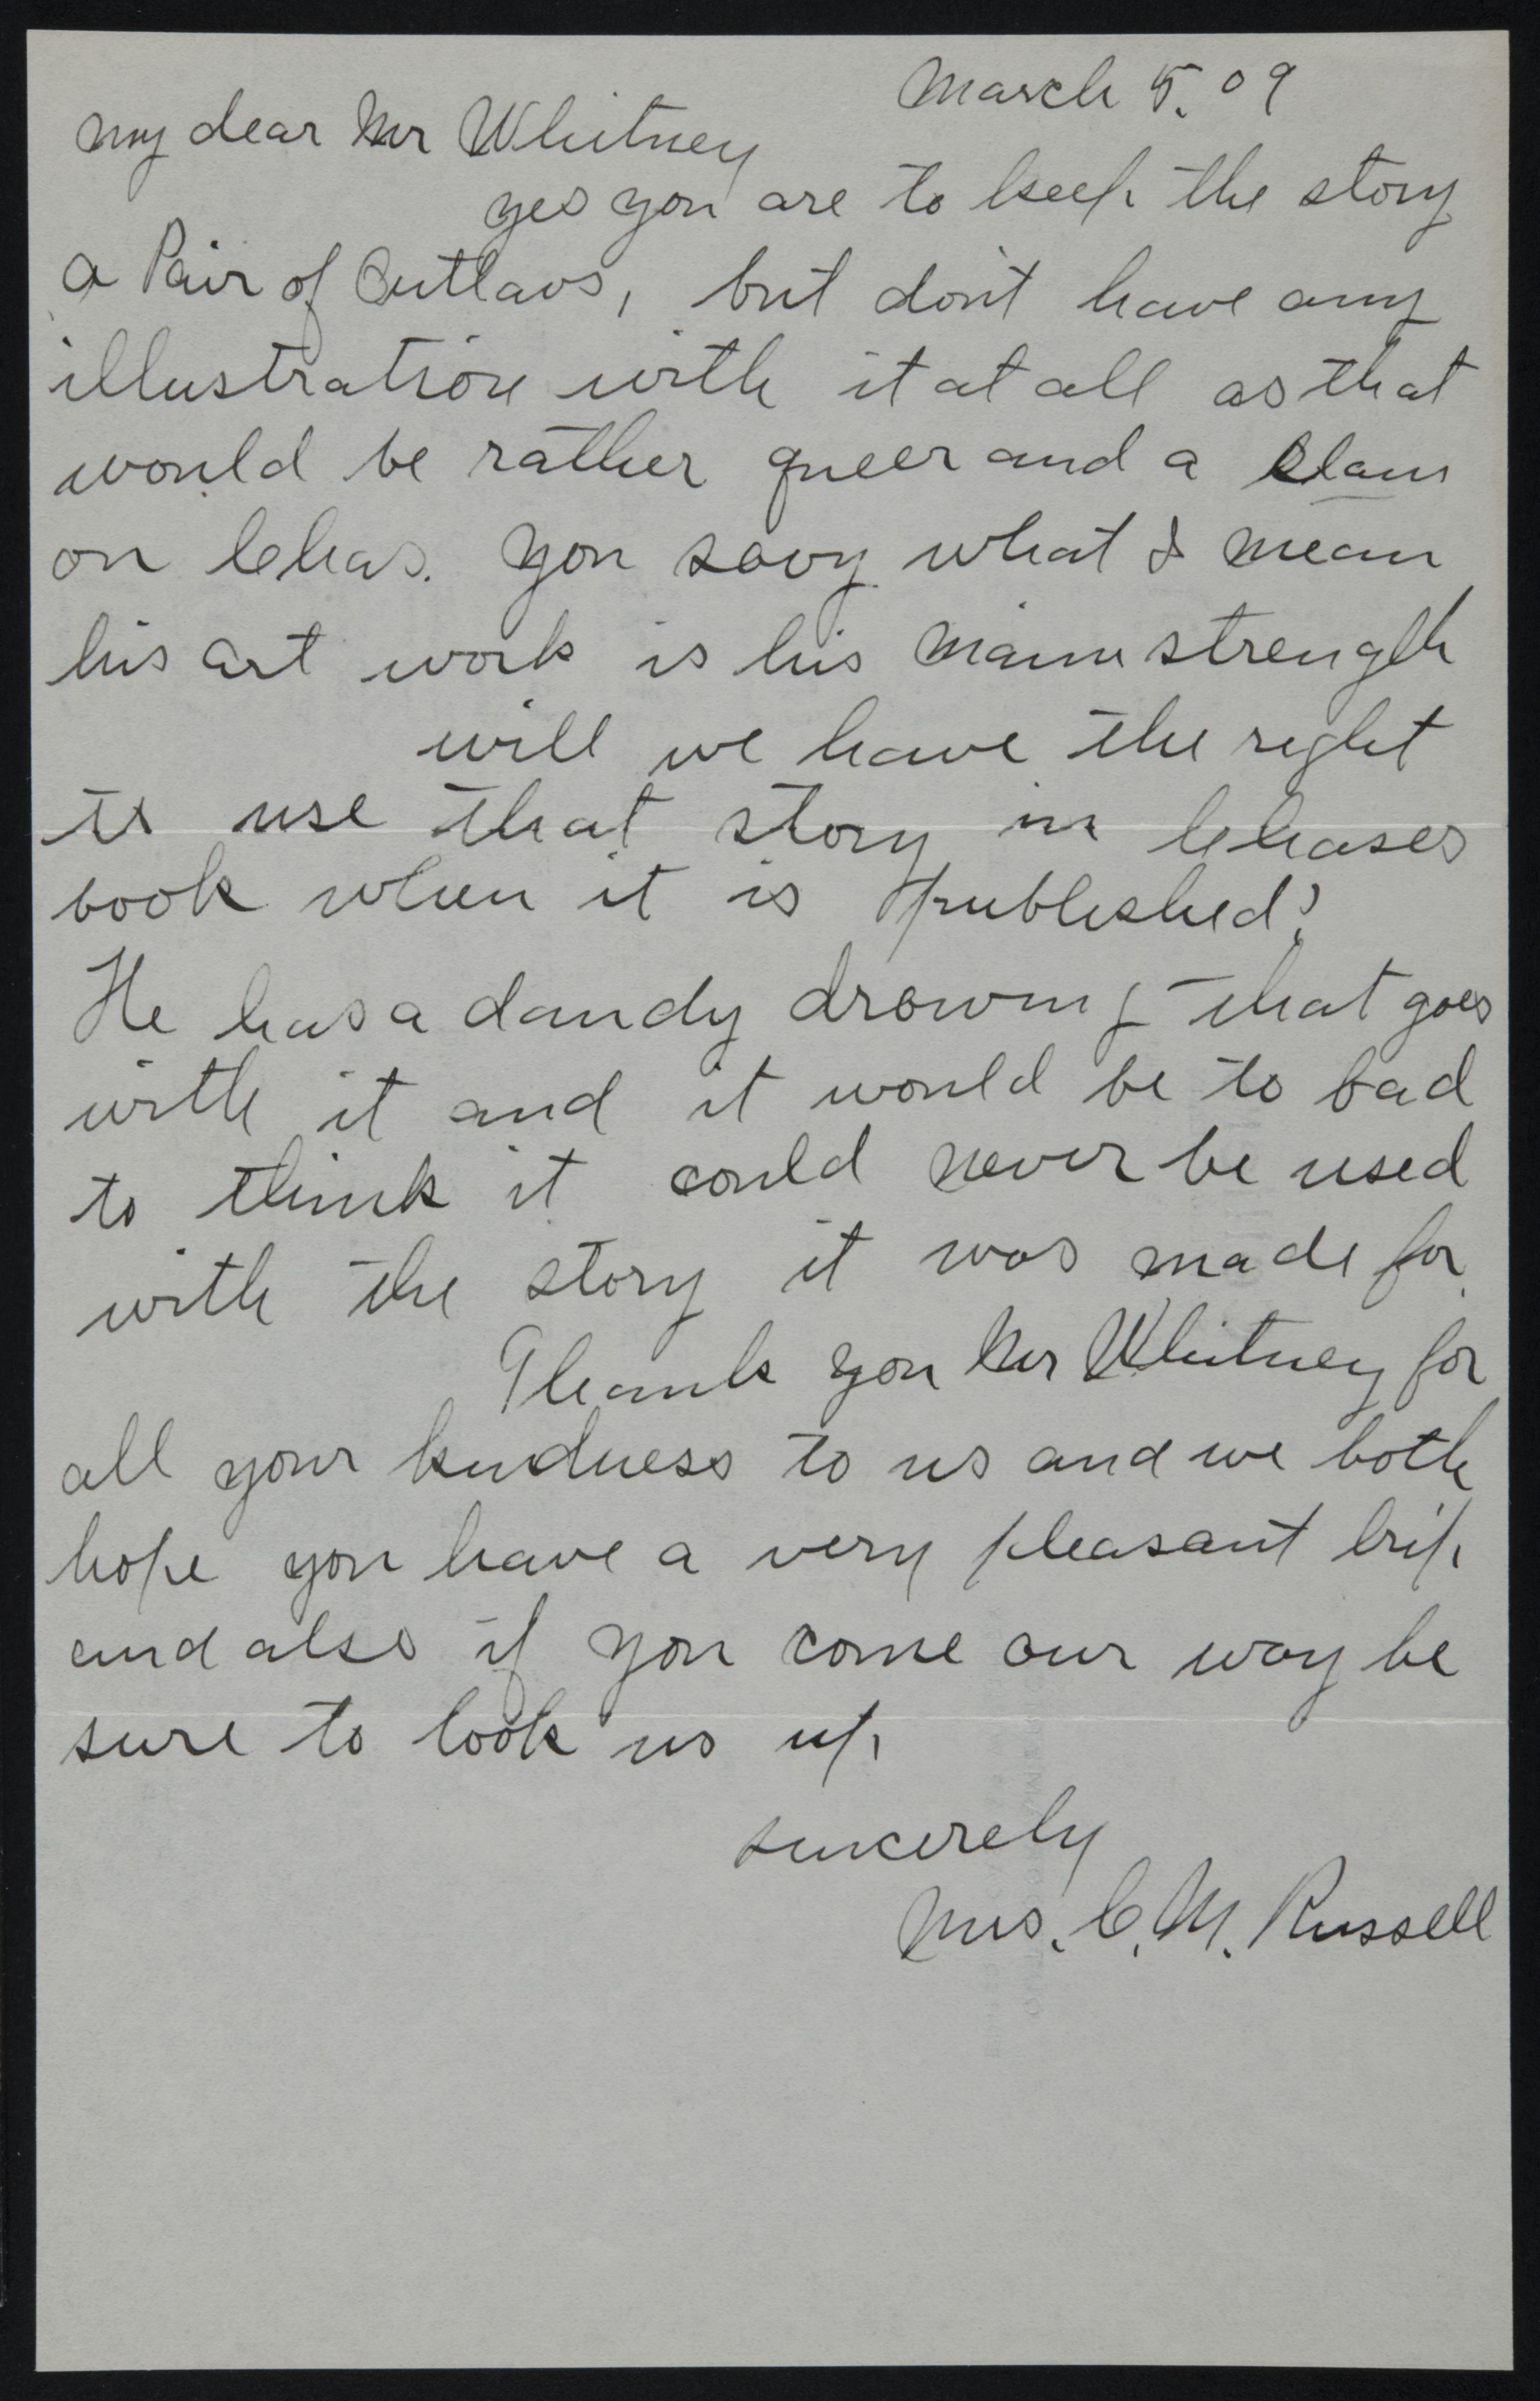 March 5. 09
My dear Mr Whitney
yes you are to keep the story
a Pair of Outlaws, but dont have any
illustration with it at all as that
would be rather queer and a slam
on Chas. you savy what I mean
his art work is his main strength
will we have the right
to use that story in Chases
book when it is published?
He has a dandy drawing that goes
with it and it would be to bad
to think it could never be used
with the story it was made for.
Thank you Mr Whitney for
all your kindness to us and we both
hope you have a very pleasant trip
and also if you come our way be
sure to look us up
sincerely
Mrs. C. M. Russell